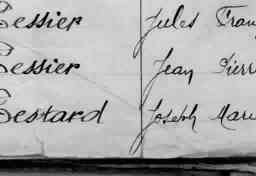 Tessier Jules Fran
Tessier Jean Pierr
Testard Joseph Mari